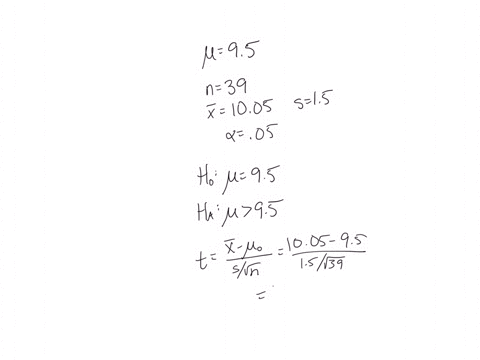 μ=9.5
n=39
x̄=10.05 s=1.5
α=.05
H₀: μ=9.5
Hₐ: μ>9.5
t= (x̄-μ₀)/(s/√n) = (10.05-9.5)/(1.5/√39)
=